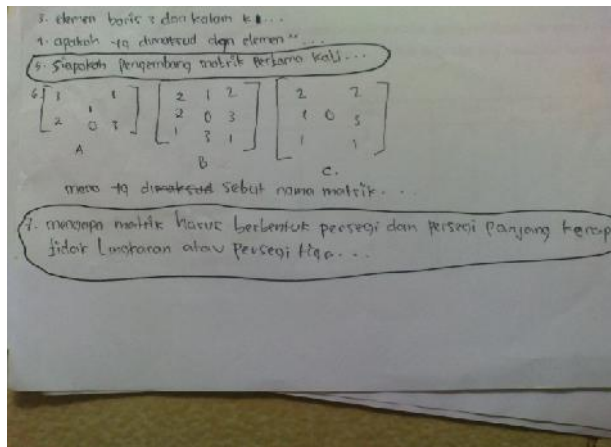 3. elemen baris 3 dan kolom k1...
4. apakah yg dimaksud dgn elemen"...
5. Siapakah pengembang matrik pertama kali...
6. 1 1 2 1 2 2 2
1 2 0 3 1 0 3
2 0 3 1 3 1 1 1
A B C.
mana yg dimaksud sebut nama matrik...
7. mengapa matrik harus berbentuk persegi dan persegi panjang
tidak lingkaran atau persegi tiga...